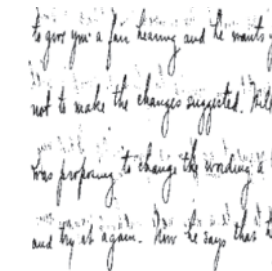 to give you a fair hearing and he wants
not to make the changes suggested.
was proposing to change the wording a
and try it again. Now he says that